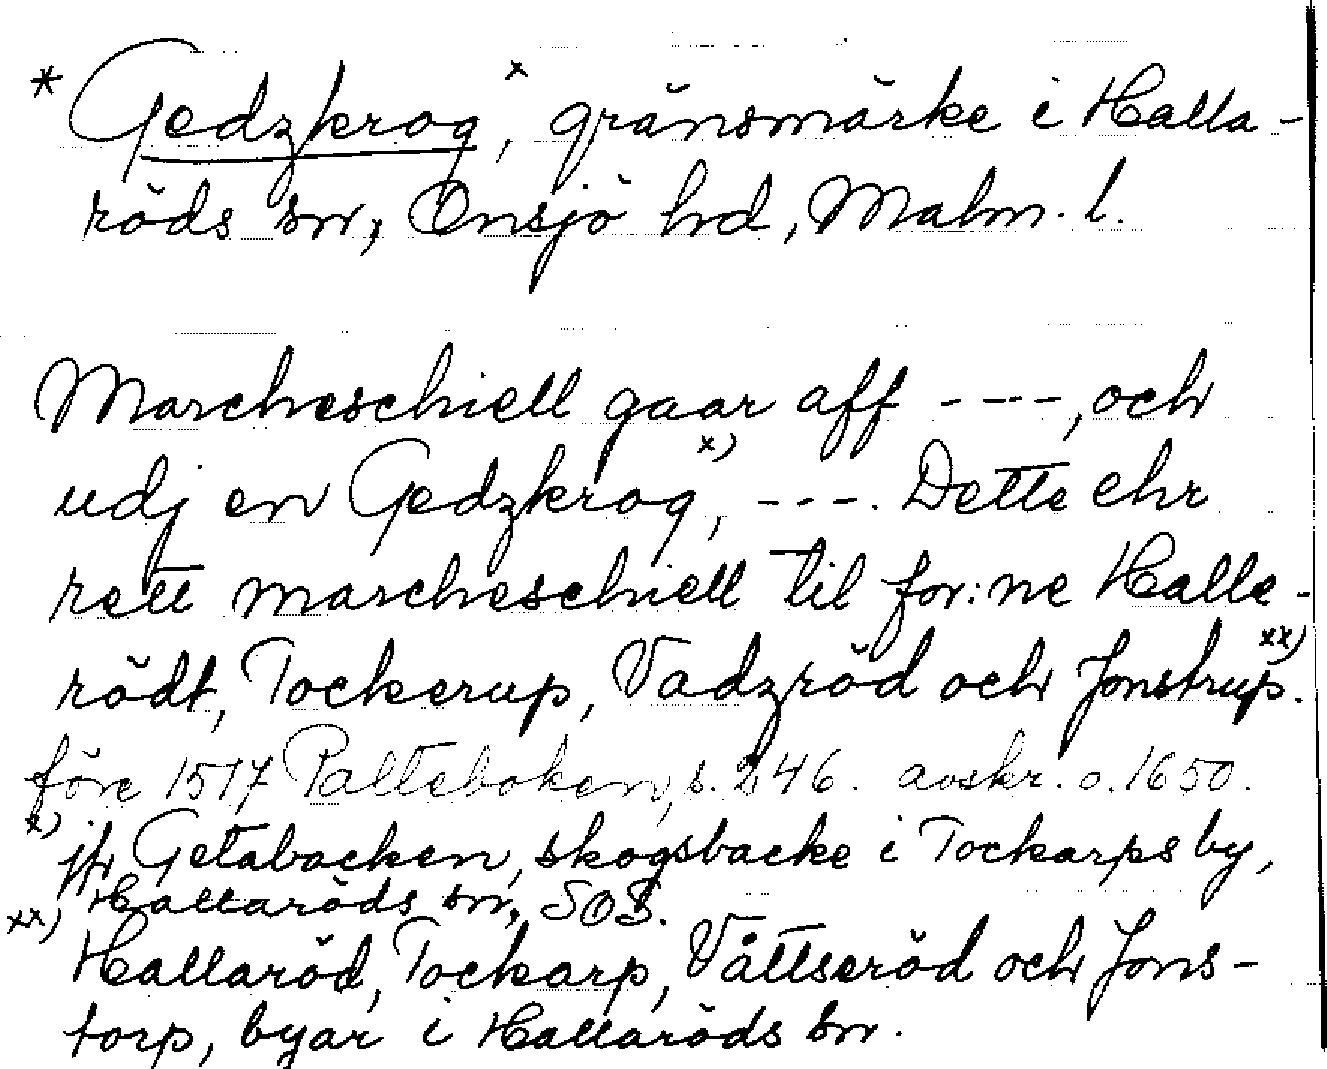 * Gedzkrog x, gränsmärke i Halla-
röds sn, Onsjö hd, Malm. l.
Marcheschiell gaar aff ----, och
udj en Gedzkrog x), ---. Dette ehr
rett marcheschiell til for:ne Halle-
rödt, Tockerup, Vadzröd och Jonstrup. xx)
före 1517 Palteboken, s. 246. avskr. o. 1650.
x) jfr Getabacken, skogsbacke i Tockarps by,
Hallaröds sn, SOS.
xx) Hallaröd, Tockarp, Våttseröd och Jons-
torp, byar i Hallaröds sn.